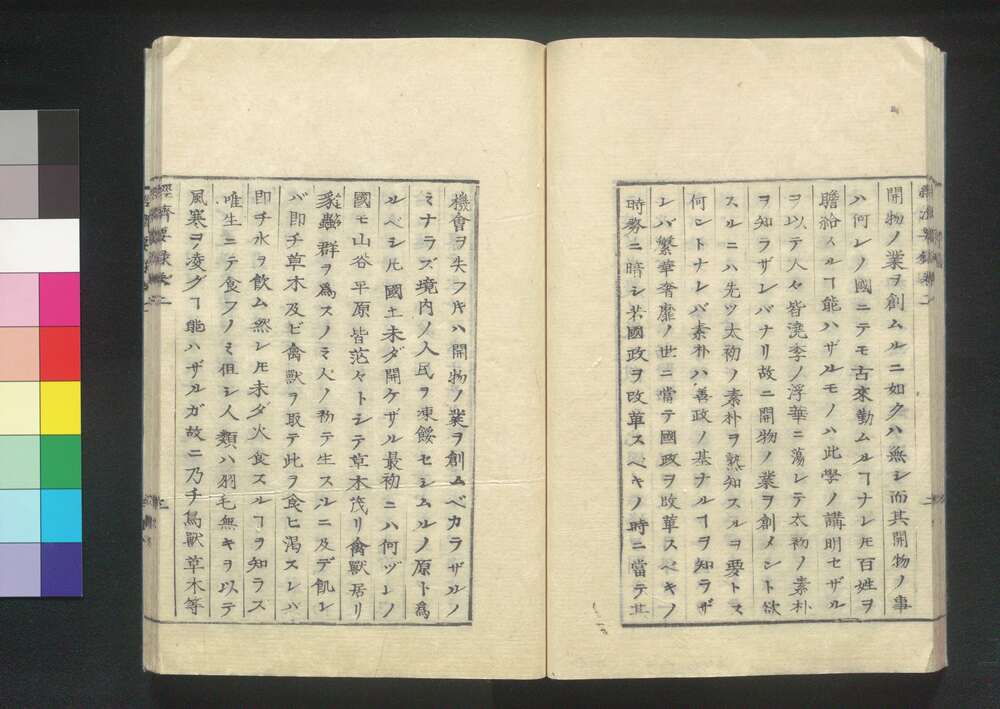 開物ノ業ヲ創ムルニ如クハ無シ而其開物ノ事
ハ何レノ國ニテモ古來勤ムルヿナレ𪜈百姓ヲ
贍給スルヿ能ハザルモノハ此學ノ講明セザル
ヲ以テ人々皆澆季ノ浮華ニ蕩レテ太初ノ素朴
ヲ知ラザレバナリ故ニ開物ノ業ヲ創メント欲
スルニハ先ツ太初ノ素朴ヲ熟知スルヲ要トス
何ントナレバ素朴ハ善政ノ基ナルヿヲ知ラザ
レバ繁華奢靡ノ世ニ當テ國政ヲ改革スベキノ
時務ニ暗シ若國政ヲ改革スベキノ時ニ當テ其
機會ヲ失フ𪜈ハ開物ノ業ヲ創ムベカラザルノ
ミナラズ境内ノ人民ヲ凍餒セシムルノ原ト爲
ルベシ凡國土未ダ開ケザル最初ニハ何ヅレノ
國モ山谷平原皆茫々トシテ草木茂リ禽獸居リ
蟲群ヲ爲スノミ人ノ初テ生スルニ及デ飢レ
バ即チ草木及ビ禽獸ヲ取テ此ヲ食ヒ渇スレバ
即チ水ヲ飲ム然レ𪜈未ダ火食スルヿヲ知ラス
唯生ニテ食フノミ但シ人類ハ羽毛無キヲ以テ
風寒ヲ凌グヿ能ハザルガ故ニ乃チ鳥獸草木等
經濟要録卷二